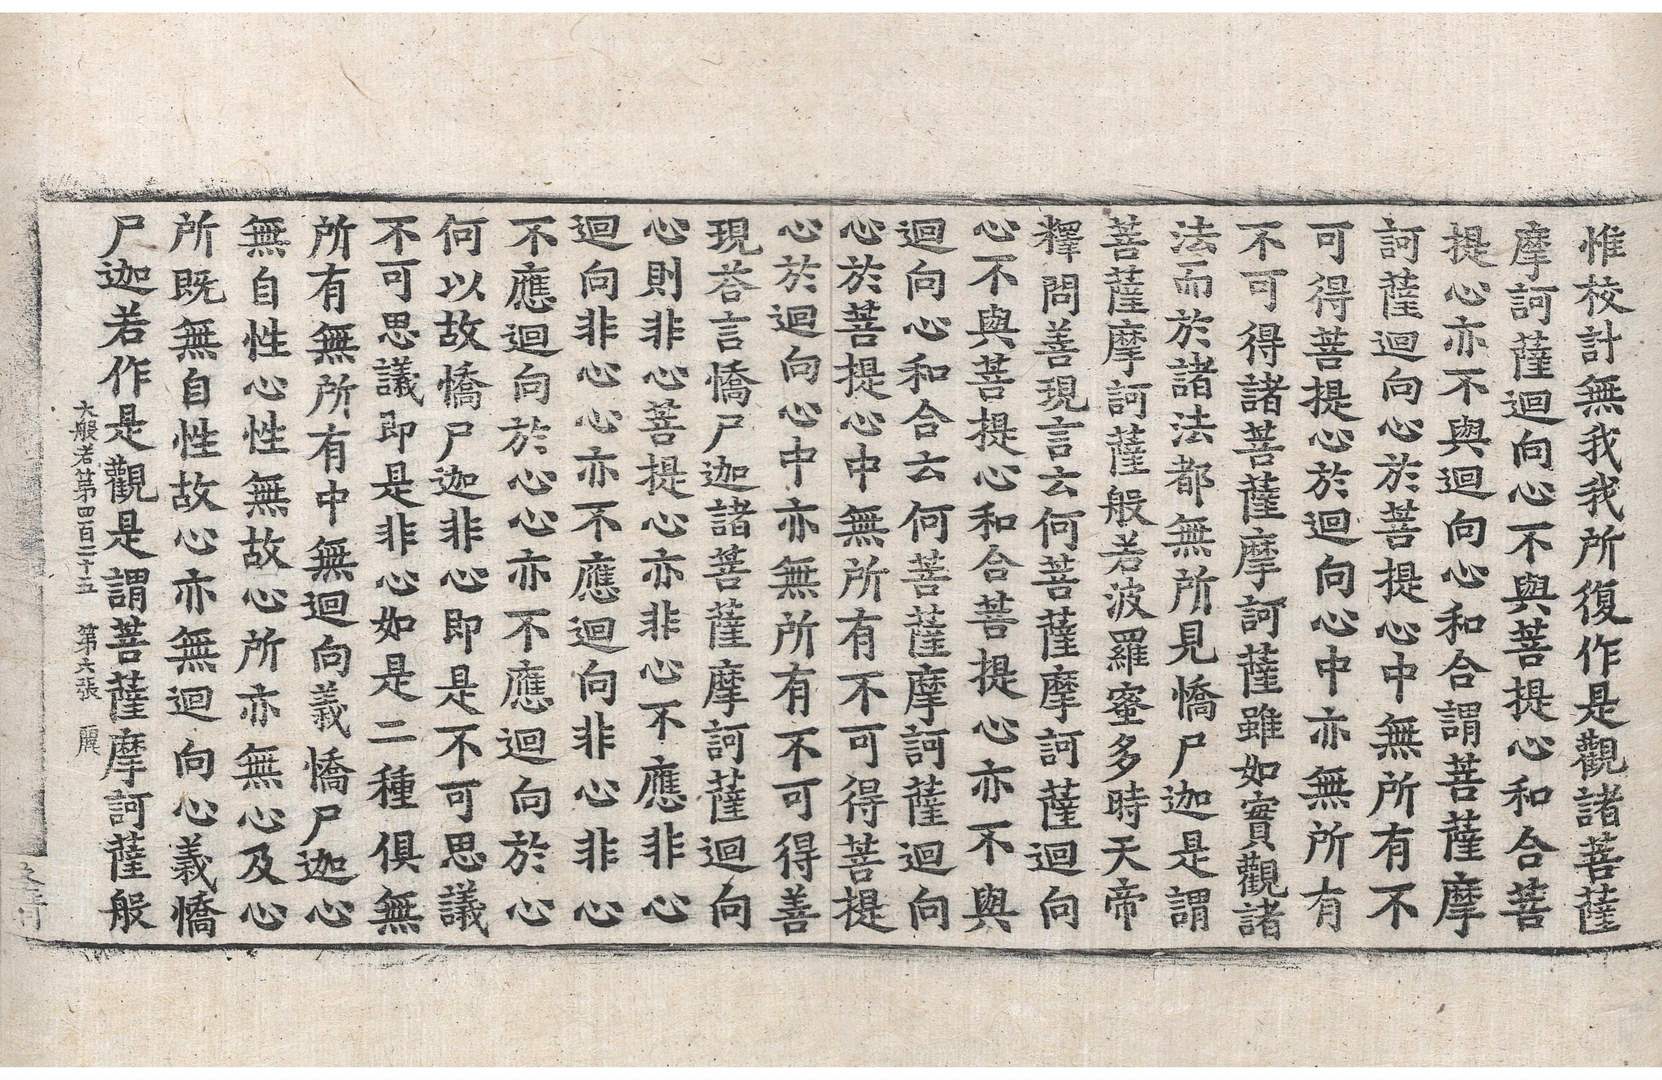 惟校計無我我所復作是觀諸菩薩
摩訶薩迴向心不與菩提心和合菩
提心亦不與迴向心和合謂菩薩摩
訶薩迴向心於菩提心中無所有不
可得菩提心於迴向心中亦無所有
不可得諸菩薩摩訶薩雖如實觀諸
法而於諸法都無所見憍尸迦是謂
菩薩摩訶薩般若波羅蜜多時天帝
釋問善現言云何菩薩摩訶薩迴向
心不與菩提心和合菩提心亦不與
迴向心和合云何菩薩摩訶薩迴向
心於菩提心中無所有不可得菩提
心於迴向心中亦無所有不可得善
現荅言憍尸迦諸菩薩摩訶薩迴向
心則非心菩提心亦非心不應非心
迴向非心心亦不應迴向非心非心
不應迴向於心心亦不應迴向於心
何以故憍尸迦非心即是不可思議
不可思議即是非心如是二種俱無
所有無所有中無迴向義憍尸迦心
無自性心性無故心所亦無心及心
所既無自性故心亦無迴向心義憍
尸迦若作是觀是謂菩薩摩訶薩般
大般若第四百二十五 第六張 麗